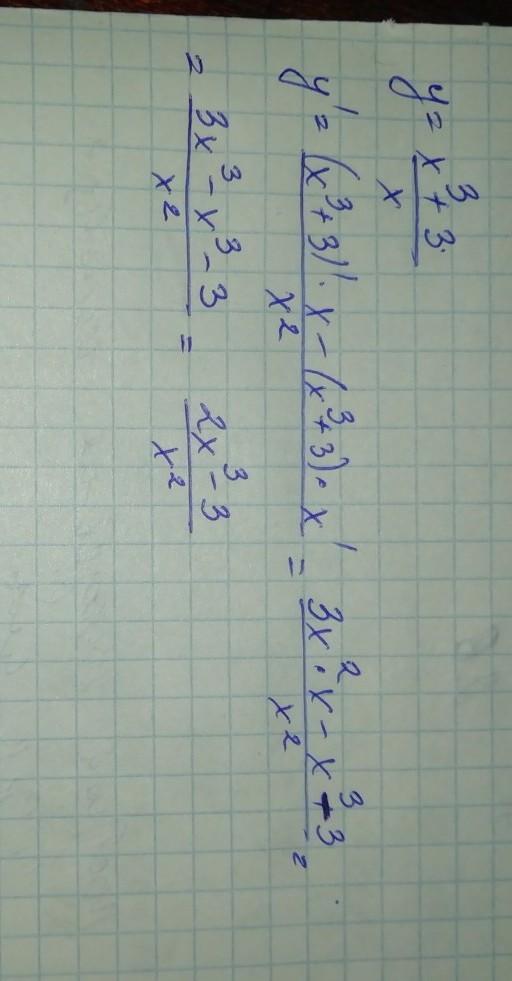 y = (x³ + 3)/x
y' = ((x³ + 3)' · x − (x³ + 3) · x')/x² = (3x² · x − x³ − 3)/x² =
= (3x³ − x³ − 3)/x² = (2x³ − 3)/x²